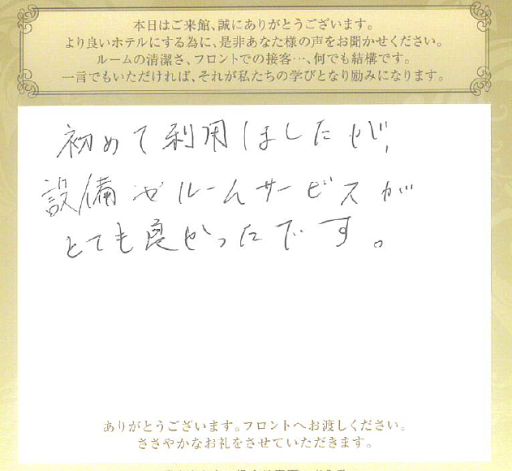 本日はご来館、誠にありがとうございます。
より良いホテルにする為に、是非あなた様の声をお聞かせください。
ルームの清潔さ、フロントでの接客…、何でも結構です。
一言でもいただければ、それが私たちの学びとなり励みになります。
初めて利用しましたが、
設備やルームサービスが
とても良かったです。
ありがとうございます。フロントへお渡しください。
ささやかなお礼をさせていただきます。